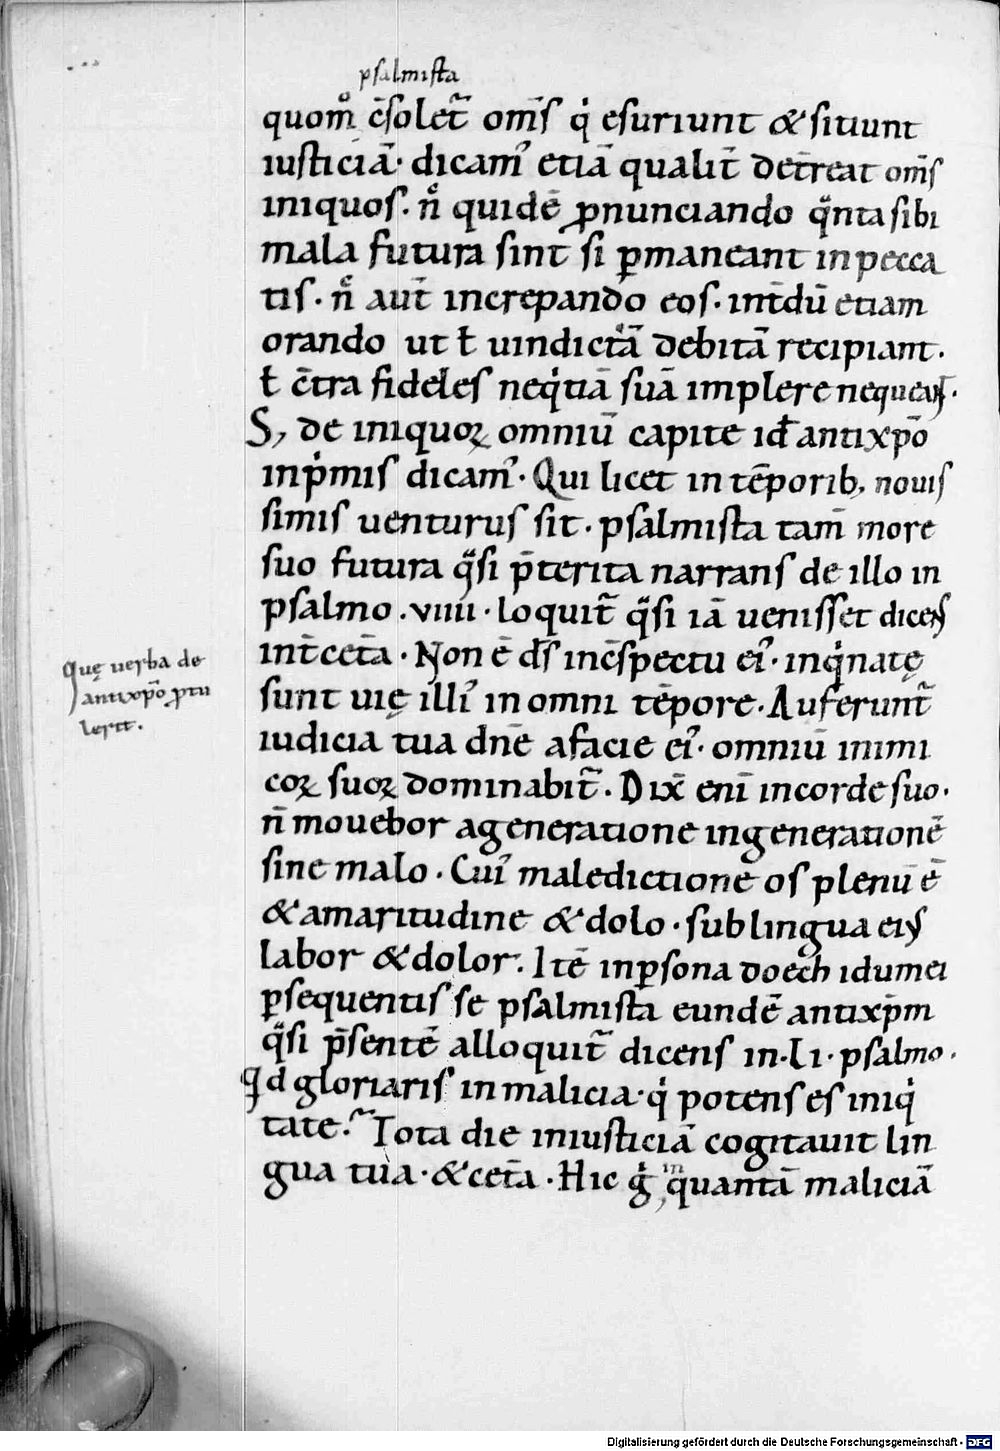 psalmista
quom̊ c̄solet᷑ om̄s q̇ esuriunt & sitiunt
iusticiā· dicam᾽ etiā qualit̄ det̄reat om̄s
iniquos· n̊ quidē ꝓnunciando q̈nta sibi
mala futura sint si ꝑmaneant in pecca
tis· n̊ aut̄ increpando eos· int̄dū etiam
orando ut ł uindictā debitā recipiant·
ł c̄tra fideles neq̇tiā suā implere nequeant·
S, de iniquoꝝ omniū capite id̄ antixp̄o
inṗmis dicam᾽· Qui licet in tēporib, nouis
simis uenturus sit· psalmista tam̄ more
suo futura q̈si p̄terita narrans de illo in
psalmo ·viiii· loquit᷑ q̈si iā uenisset dicens
int̄cet̄a· Non ē d̄s inc̄spectu ei᾽· inq̇natę
sunt uię illi᾽ in omni tēpore· Auferunt᷑
Quę uerba de
antixp̄o ꝓtu
lerit.
iudicia tua dn̄e afacie ei᾽· omniū inimi
coꝝ suoꝝ dominabit᷑· Dix̄ eni̅ incorde suo·
n̄ mouebor ageneratione ingenerationē
sine malo· Cui᾽ maledictione os plenū ē
& amaritudine & dolo· sub lingua eius
labor & dolor. Itē inꝑsona doech idumei
ꝑsequentis se psalmista eundē antixp̄m
q̈si p̄sentē alloquit᷑ dicens in·LI· psalmo·
Qd gloriaris in malicia· q̇ potens es iniq̇
tate? Tota die iniusticiā cogitauit lin
gua tua· & cet̄a· Hic g̊ in quantā maliciā
Digitalisierung gefördert durch die Deutsche Forschungsgemeinschaft - DFG